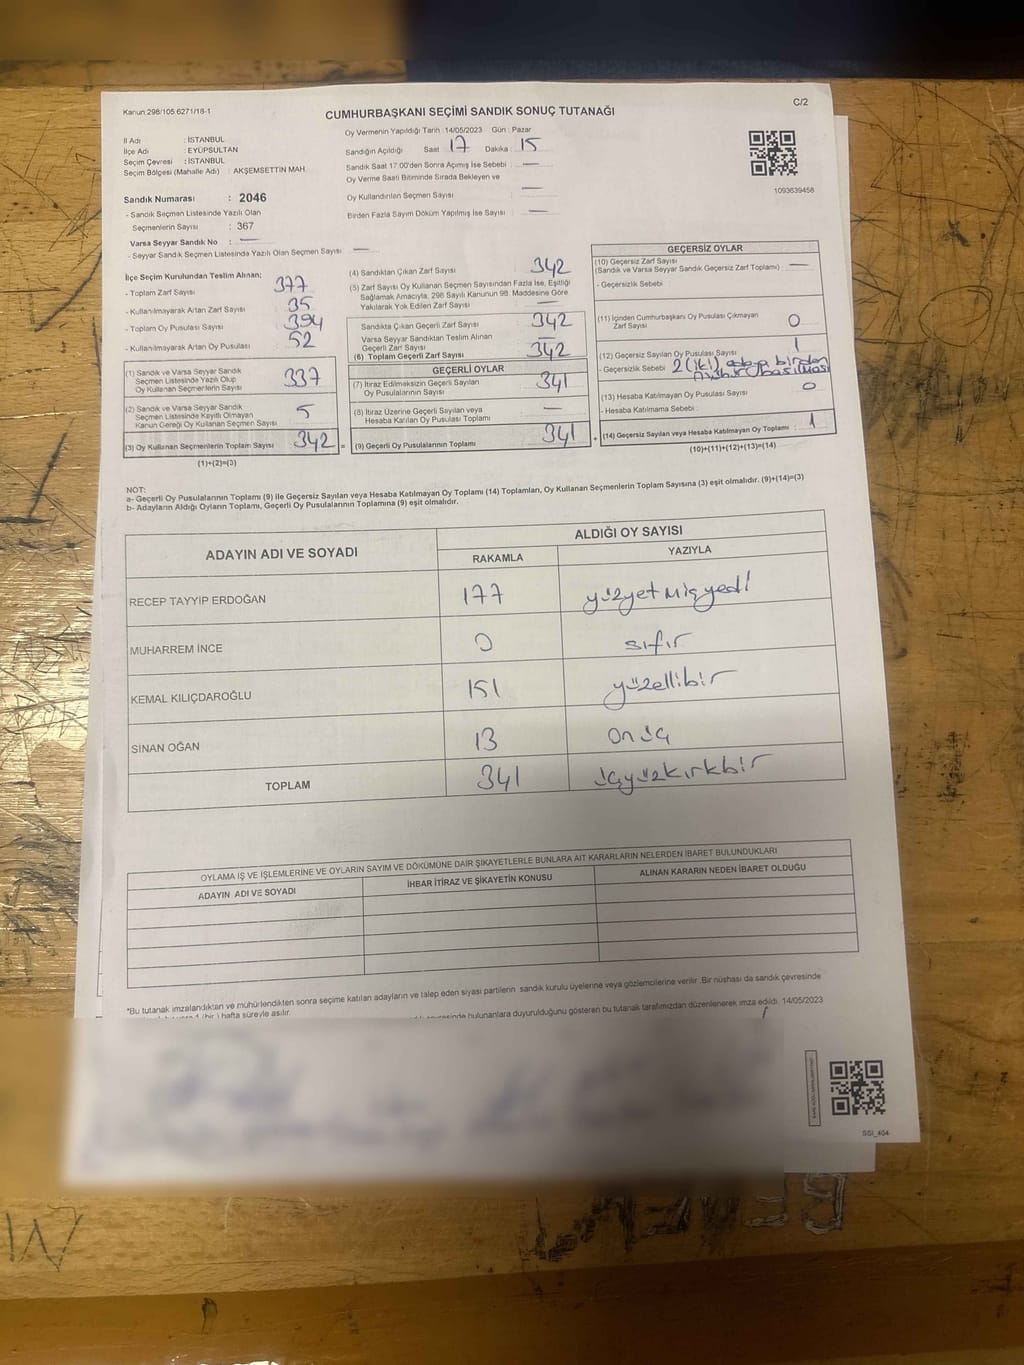 Kanun 298/105 6271/18-1
CUMHURBAŞKANI SEÇİMİ SANDIK SONUÇ TUTANAĞI
C/2
Oy Vermenin Yapıldığı Tarih : 14/05/2023 Gün : Pazar
İl Adı : İSTANBUL
İlçe Adı : EYÜPSULTAN
Seçim Çevresi : İSTANBUL
Seçim Bölgesi (Mahalle Adı) : AKŞEMSETTİN MAH
Sandığın Açıldığı Saat 17 Dakika : 15
Sandık Saat 17.00'den Sonra Açımış İse Sebebi : —
Oy Verme Saati Bitiminde Sırada Bekleyen ve
Oy Kullandırılan Seçmen Sayısı : —
Birden Fazla Sayım Döküm Yapılmış İse Sayısı : —
1093639458
Sandık Numarası : 2046
- Sandık Seçmen Listesinde Yazılı Olan
Seçmenlerin Sayısı : 367
Varsa Seyyar Sandık No : —
- Seyyar Sandık Seçmen Listesinde Yazılı Olan Seçmen Sayısı : —
İlçe Seçim Kurulundan Teslim Alınan;
- Toplam Zarf Sayısı : 377
- Kullanılmayarak Artan Zarf Sayısı : 35
- Toplam Oy Pusulası Sayısı : 394
- Kullanılmayarak Artan Oy Pusulası : 52
(1) Sandık ve Varsa Seyyar Sandık
Seçmen Listesinde Yazılı Olup
Oy Kullanan Seçmenlerin Sayısı : 337
(2) Sandık ve Varsa Seyyar Sandık
Seçmen Listesinde Kayıtlı Olmayan
Kanun Gereği Oy Kullanan Seçmen Sayısı : 5
(3) Oy Kullanan Seçmenlerin Toplam Sayısı : 342 =
(1)+(2)=(3)
(4) Sandıktan Çıkan Zarf Sayısı : 342
(5) Zarf Sayısı Oy Kullanan Seçmen Sayısından Fazla İse, Eşitliği
Sağlamak Amacıyla, 298 Sayılı Kanunun 98. Maddesine Göre
Yakılarak Yok Edilen Zarf Sayısı : —
Sandıkta Çıkan Geçerli Zarf Sayısı : 342
Varsa Seyyar Sandıktan Teslim Alınan
Geçerli Zarf Sayısı : —
(6) Toplam Geçerli Zarf Sayısı : 342
GEÇERLİ OYLAR
(7) İtiraz Edilmeksizin Geçerli Sayılan
Oy Pusulasının Sayısı : 341
(8) İtiraz Üzerine Geçerli Sayılan veya
Hesaba Katılan Oy Pusulası Toplamı : —
(9) Geçerli Oy Pusulalarının Toplamı : 341 +
GEÇERSİZ OYLAR
(10) Geçersiz Zarf Sayısı : —
(Sandık ve Varsa Seyyar Sandık Geçersiz Zarf Toplamı)
- Geçersizlik Sebebi
(11) İçinden Cumhurbaşkanı Oy Pusulası Çıkmayan
Zarf Sayısı : 0
(12) Geçersiz Sayılan Oy Pusulası Sayısı : 1
- Geçersizlik Sebebi 2 (iki) adaya birden
mühür basılması
(13) Hesaba Katılmayan Oy Pusulası Sayısı : 0
- Hesaba Katılmama Sebebi
(14) Geçersiz Sayılan veya Hesaba Katılmayan Oy Toplamı : 1
(10)+(11)+(12)+(13)=(14)
NOT:
a- Geçerli Oy Pusulalarının Toplamı (9) ile Geçersiz Sayılan veya Hesaba Katılmayan Oy Toplamı (14) Toplamları, Oy Kullanan Seçmenlerin Toplam Sayısına (3) eşit olmalıdır. (9)+(14)=(3)
b- Adayların Aldığı Oyların Toplamı, Geçerli Oy Pusulalarının Toplamına (9) eşit olmalıdır.
ADAYIN ADI VE SOYADI
ALDIĞI OY SAYISI
RAKAMLA YAZIYLA
RECEP TAYYİP ERDOĞAN 177 yüzyetmişyedi
MUHARREM İNCE 0 sıfır
KEMAL KILIÇDAROĞLU 151 yüzellibir
SİNAN OĞAN 13 onüç
TOPLAM 341 üçyüzkırkbir
OYLAMA İŞ VE İŞLEMLERİNE VE OYLARIN SAYIM VE DÖKÜMÜNE DAİR ŞİKAYETLERLE BUNLARA AİT KARARLARIN NELERDEN İBARET BULUNDUKLARI
ADAYIN ADI VE SOYADI İHBAR İTİRAZ VE ŞİKAYETİN KONUSU ALINAN KARARIN NEDEN İBARET OLDUĞU
*Bu tutanak imzalandıktan ve mühürlendikten sonra seçime katılan adayların ve talep eden siyasi partilerin sandık kurulu üyelerine veya gözlemcilerine verilir. Bir nüshası da sandık çevresinde
1 (bir) hafta süreyle asılır.
bulunanlara duyurulduğunu gösteren bu tutanak tarafımızdan düzenlenerek imza edildi. 14/05/2023
SSI_404